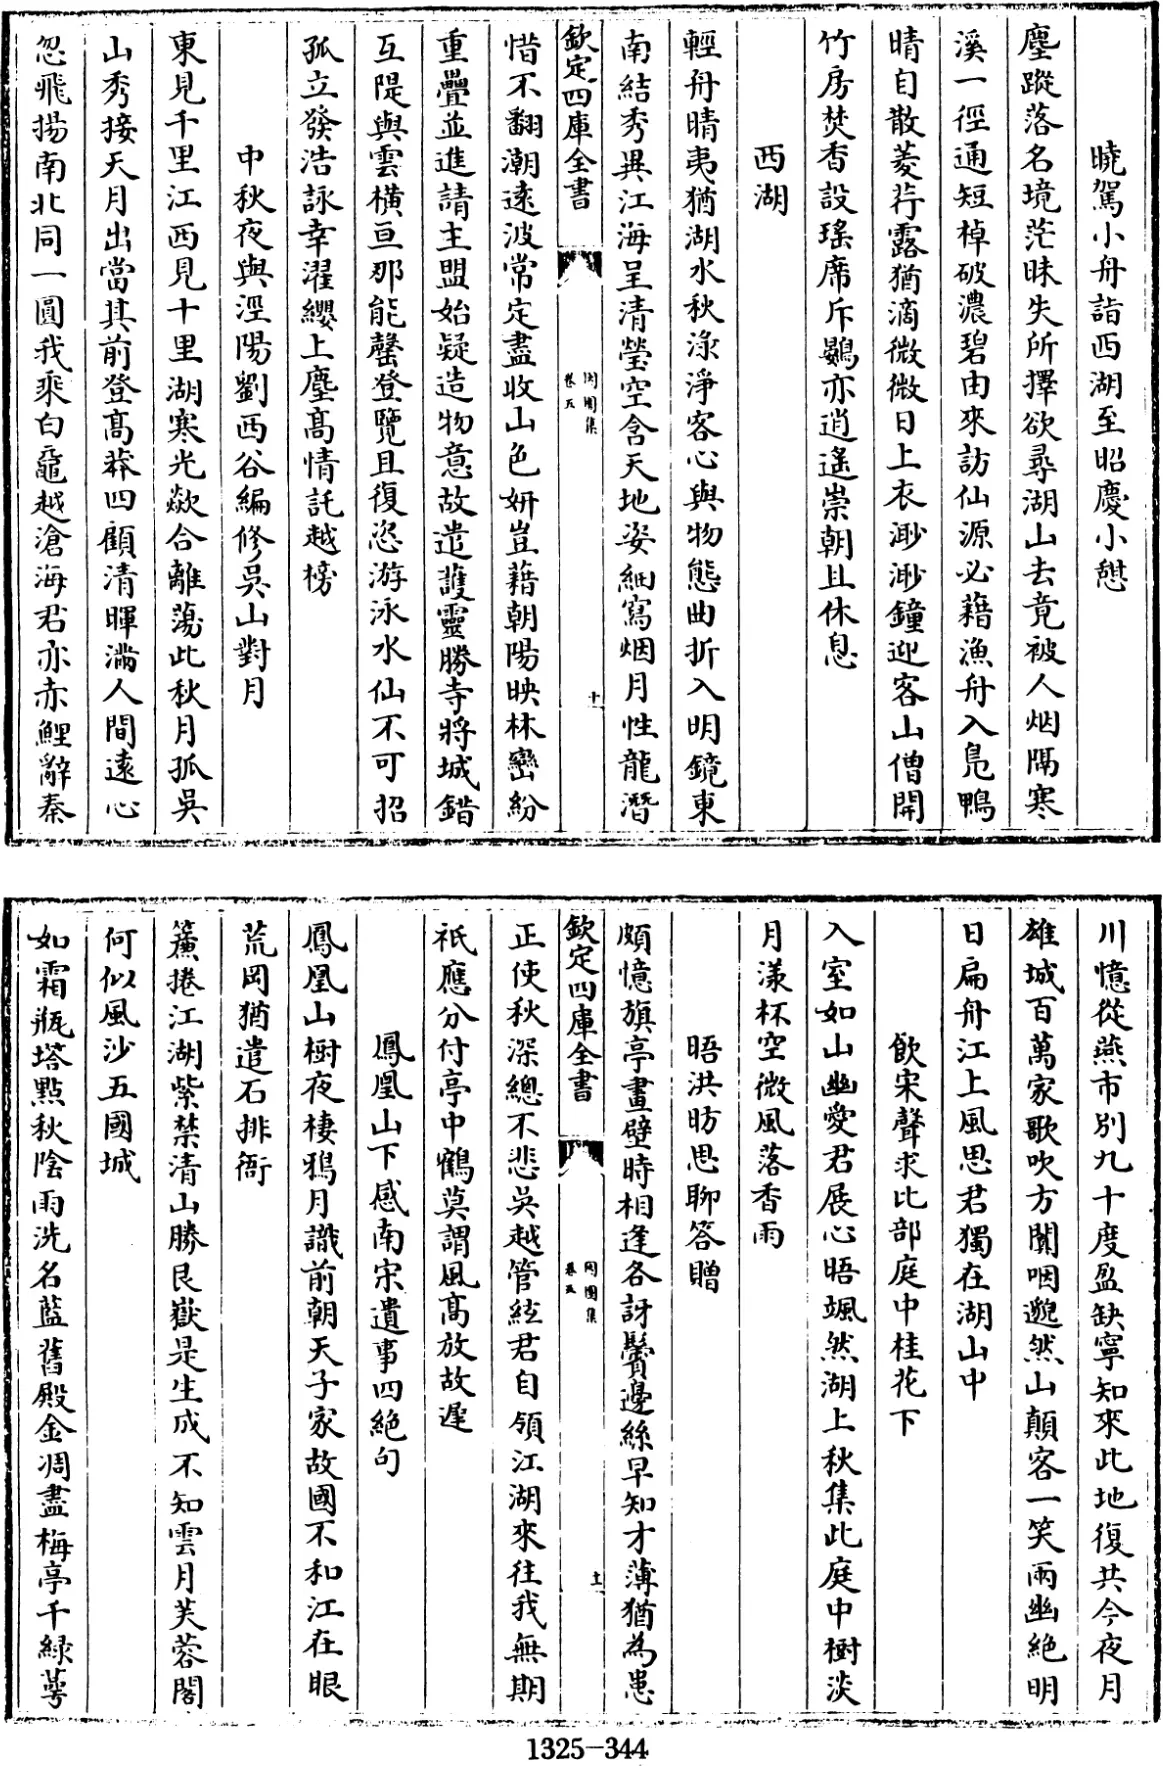 曉駕小舟詣西湖至昭慶小憇
塵蹤落名境茫昧失所擇欲尋湖山去竟被人烟隔寒
溪一徑通短棹破濃碧由來訪仙源必藉漁舟入鳧鴨
晴自散菱荇露猶滴微微日上衣渺渺鐘迎客山僧開
竹房焚香設瑤席斥鷃亦逍遙崇朝且休息
西湖
輕舟晴夷猶湖水秋淥淨客心與物態曲折入明鏡東
南結秀異江海呈清瑩空含天地姿細寫烟月性龍潛
欽定四庫全書
卷五
十
惜不翻潮遠波常定盡收山色妍豈藉朝陽映林巒紛
重疊並進請主盟始疑造物意故遣護靈勝寺將城錯
互隄與雲橫亘那能罄登覽且復恣游泳水仙不可招
孤立發浩詠幸濯纓上塵高情託越榜
中秋夜與涇陽劉西谷編修吳山對月
東見千里江西見十里湖寒光歘合離蕩此秋月孤吳
山秀接天月出當其前登高莽四顧清暉滿人間遠心
忽飛揚南北同一圓我乘白黿越滄海君亦赤鯉辭秦
川憶從燕市別九十度盈缺寧知來此地復共今夜月
雄城百萬家歌吹方闐咽邈然山顛客一笑兩幽絕明
日扁舟江上風思君獨在湖山中
飲宋聲求比部庭中桂花下
入室如山幽愛君展心晤颯然湖上秋集此庭中樹淡
月漾杯空微風落香雨
晤洪昉思聊答贈
頗憶旗亭畫壁時相逢各訝鬢邊絲早知才薄猶為患
欽定四庫全書
卷五
十一
正使秋深總不悲吳越管絃君自領江湖來往我無期
祇應分付亭中鶴莫謂風高放故遲
鳳凰山下感南宋遺事四絕句
鳳凰山樹夜棲鴉月識前朝天子家故國不和江在眼
荒岡猶遣石排衙
簾捲江湖紫禁清山勝艮嶽是生成不知雲月芙蓉閣
何似風沙五國城
如霜瓶塔點秋陰雨洗名藍舊殿金凋盡梅亭千綠萼
1325-344